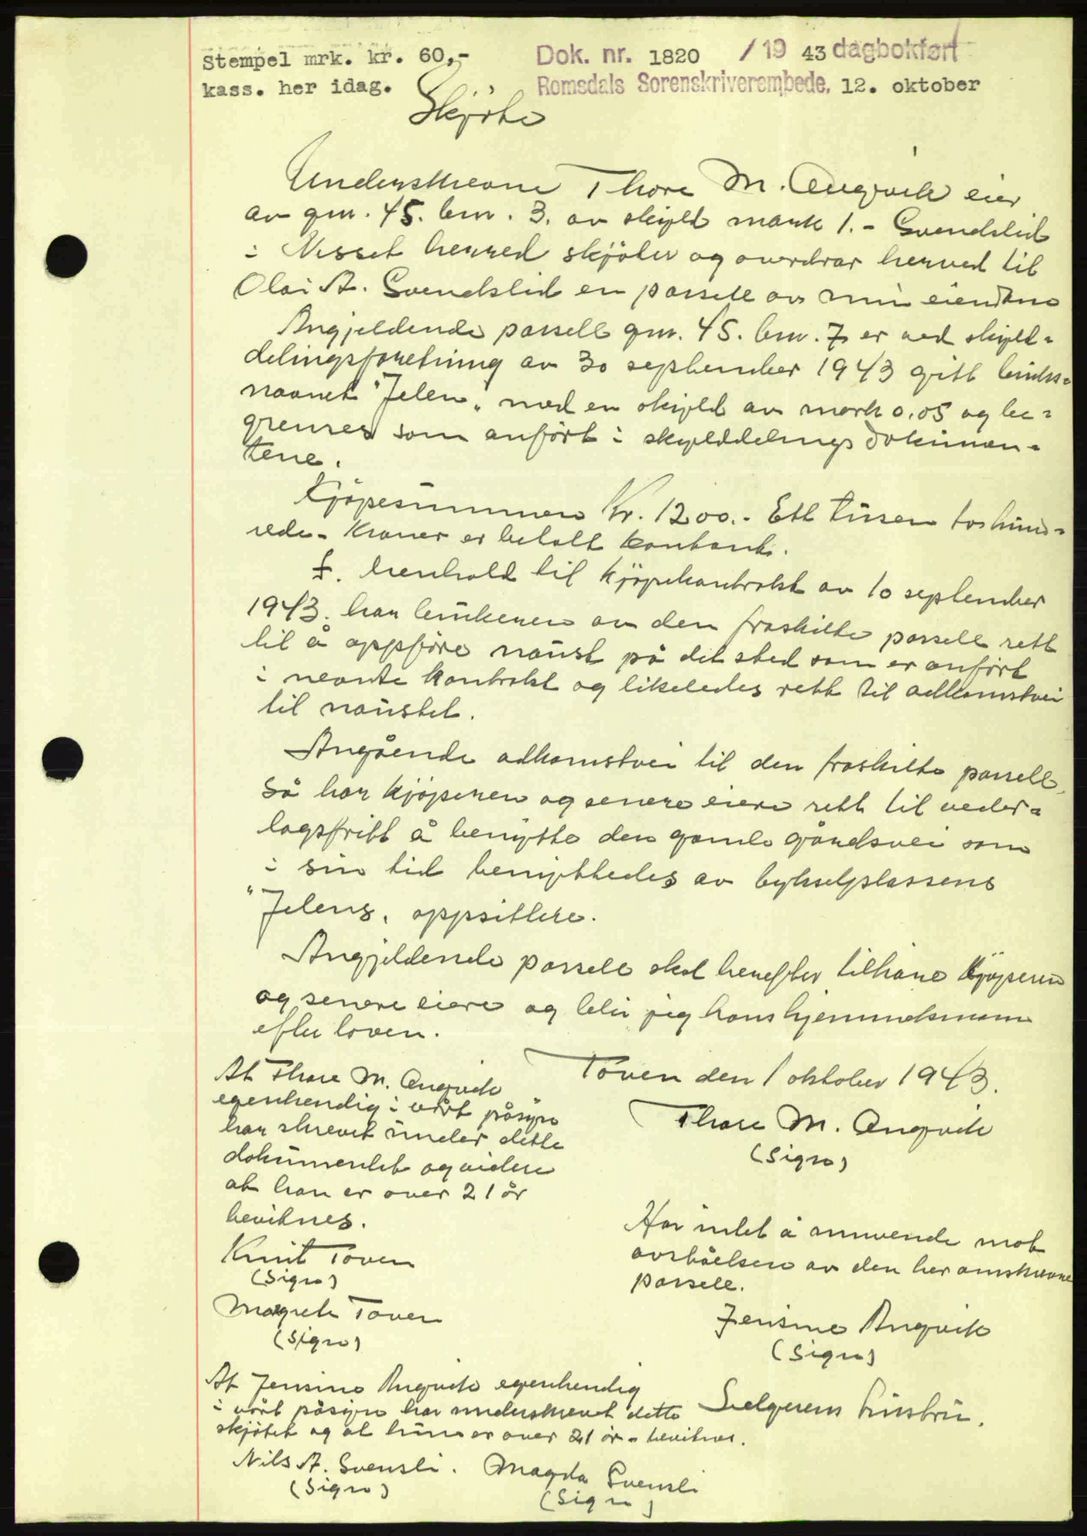 Stempel mrk. kr. 60,-
kass. her idag.
Dok. nr. 1820 /19 43 dagbokført
Romsdals Sorenskriverembede, 12. oktober
Skjöte
Underskrevne Thore M. Angvik eier
av gnr. 45. bnr. 3. av skyld mark 1.- Svendslid
i Nesset herred skjöter og overdrar herved til
Olai A. Svendslid en parsell av min eiendom
Angjeldende parsell gnr. 45. bnr. 7 er ved skyld-
delingsforretning av 30 september 1943 gitt bruks-
navnet "Jelen" med en skyld av mark 0.05 og be-
grenses som anfört i skylddelings dokumen-
tene.
Kjöpesummen Kr. 1200.- Ett tusen tohund-
rede- kroner er betalt kontant.
I. henhold til kjöpekontrakt av 10 september
1943. har brukeren av den fraskilte parsell rett
til å oppföre naust på det sted som er anfört
i nevnte kontrakt og likeledes rett til adkomstvei
til naustet.
Angående adkomstvei til den fraskilte parsell,
så har kjöperen og senere eiere rett til veder-
lagsfritt å benytte den gamle gårdsvei som
i sin tid benyttedes av bykselplassens
"Jelens" oppsittere.
Angjeldende parsell skal herefter tilhöre kjöperen
og senere eiere og blir jeg hans hjemmelsmann
efter loven.
Toven den 1 oktober 1943.
Thore M. Angvik
(Sign)
At Thore M. Angvik
egenhendig i vårt påsyn
har skrevet under dette
dokumentet og videre
at han er over 21 år
bevitnes.
Knut Toven
(Sign)
Magrete Toven
(Sign)
Har intet å innvende mot
avståelsen av den her omskrevne
parsell.
Jensine Angvik
(Sign)
Selgerens hustru.
At Jensine Angvik egenhendig
i vårt påsyn har underskrevet dette
skjötet og at hun er over 21 år - bevitnes.
Nils A. Svensli. Magda Svensli
(Sign) (Sign)